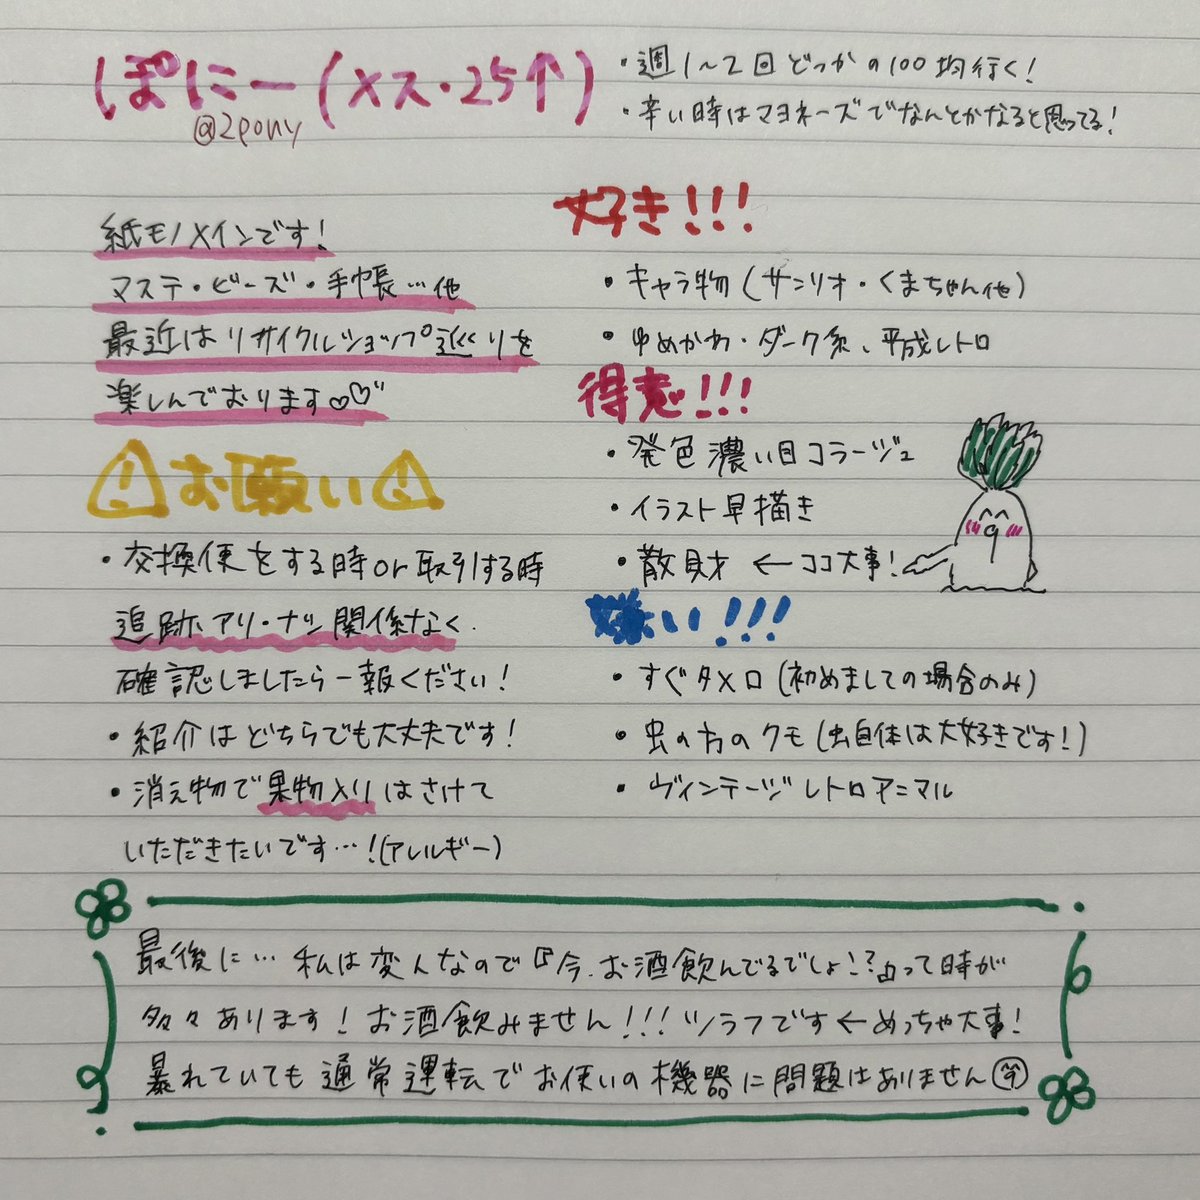 ぽにー(メス・25↑)
@2pony
・週1～2回どっかの100均行く!
・辛い時はマヨネーズでなんとかなると思ってる!
紙モノメインです!
マステ・ビーズ・手帳…他
最近はリサイクルショップ巡りを
楽しんでおります♡♡"
⚠お願い⚠
・交換便をする時or取引する時
追跡アリ・ナシ関係なく
確認しましたら一報ください!
・紹介はどちらでも大丈夫です!
・消え物で果物入りはさけて
いただきたいです…!(アレルギー)
好き!!!
・キャラ物(サンリオ・くまちゃん他)
・ゆめかわ・ダーク系、平成レトロ
得意!!!
・発色濃い目コラージュ
・イラスト早描き
・散財 ←ココ大事!
嫌い!!!
・すぐタメ口(初めましての場合のみ)
・虫の方のクモ(虫自体は大好きです!)
・ヴィンテージレトロアニマル
最後に… 私は変人なので『今、お酒飲んでるでしょ!?』って時が
多々あります! お酒飲みません!!! シラフです←めっちゃ大事!
暴れていても通常運転でお使いの機器に問題はありません㊗